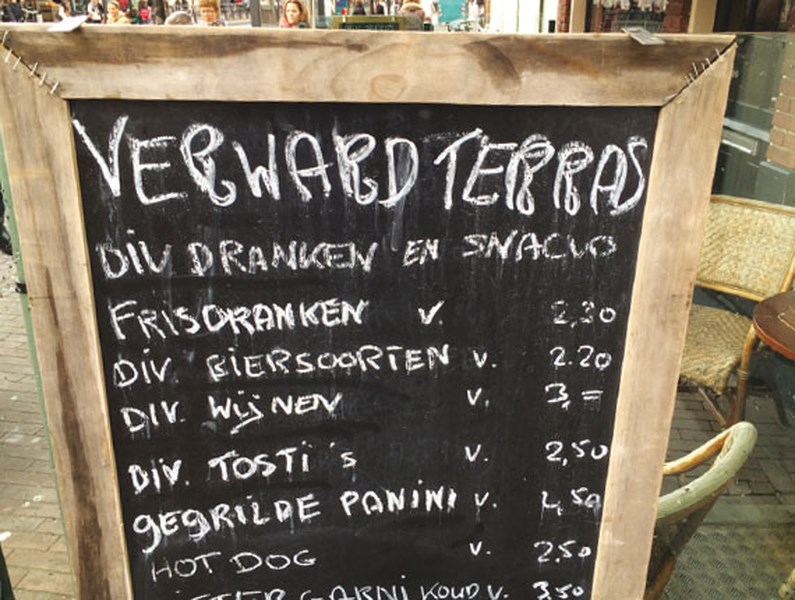 VERWARD TERRAS
DIV DRANKEN EN SNACKS
FRISDRANKEN v. 2,20
DIV. BIERSOORTEN v. 2.20
DIV. WijNEN v. 3,=
DIV. TOSTI's v. 2,50
GEGRILDE PANINI v. 4,50
HOT DOG v. 2,50
GARNI KOUD v. 3,50